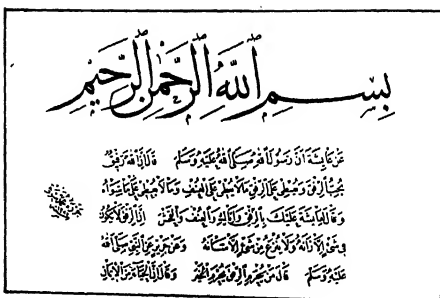 بسم الله الرحمن الرحيم
عن عائشة أن رسول الله صلى الله عليه وسلم قال إن الله رفيق
يحب الرفق ويعطي على الرفق ما لا يعطي على العنف وما لا يعطي على ما سواه
وقال لعائشة عليك بالرفق وإياك والعنف والفحش إن الرفق لا يكون
في شيء إلا زانه ولا ينزع من شيء إلا شانه وعن جرير عن النبي صلى الله
عليه وسلم قال من يحرم الرفق يحرم الخير وقال إن الحياء من الإيمان